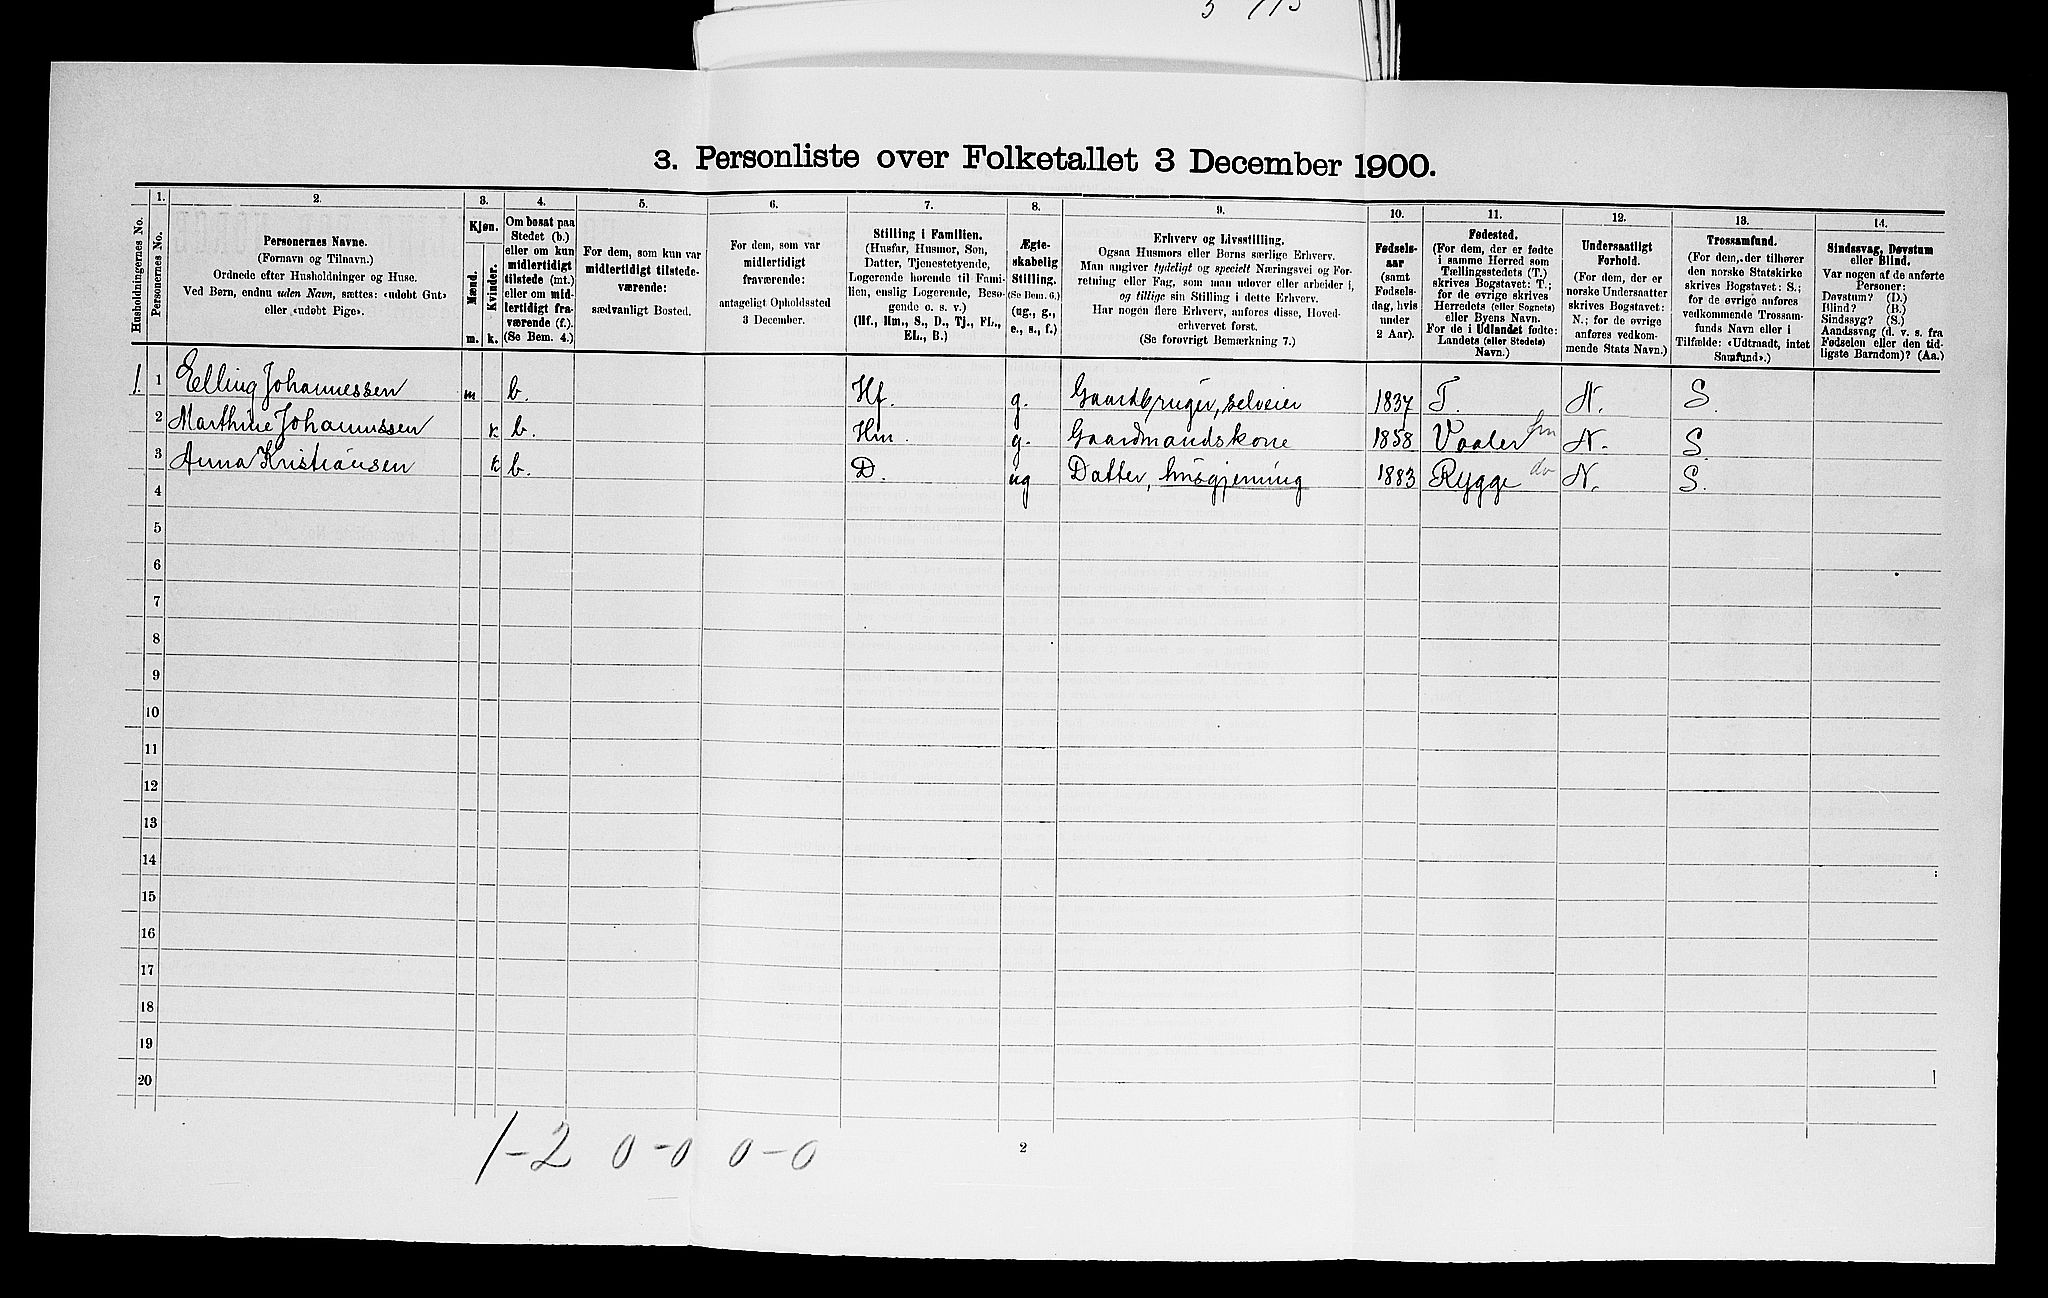 3. Personliste over Folketallet 3 December 1900.
1. 2. 3. 4. 5. 6. 7. 8. 9. 10. 11. 12. 13. 14.
Husholdningernes No.
Personernes No.
Personernes Navne.
(Fornavn og Tilnavn.)
Ordnede efter Husholdninger og Huse.
Ved Børn, endnu uden Navn, sættes: «udøbt Gut»
eller «udøbt Pige».
Kjøn.
Mænd.
Kvinder.
m. k.
Om bosat paa
Stedet (b.)
eller om kun
midlertidigt
tilstede (mt.)
eller om mid-
lertidigt fra-
værende (f.).
(Se Bem. 4.)
For dem, som kun var
midlertidigt tilstede-
værende:
sædvanligt Bosted.
For dem, som var
midlertidigt
fraværende:
antageligt Opholdssted
3 December.
Stilling i Familien.
(Husfar, Husmor, Søn,
Datter, Tjenestetyende,
Logerende hørende til Fami-
lien, enslig Logerende, Besø-
gende o. s. v.)
(Hf., Hm., S., D., Tj., FL.,
EL., B.)
Ægte-
skabelig
Stilling.
(Se Bem. 6.)
(ug., g.,
e., s., f.)
Erhverv og Livsstilling.
Ogsaa Husmors eller Børns særlige Erhverv.
Man angiver tydeligt og specielt Næringsvei og For-
retning eller Fag, som man udøver eller arbeider i,
og tillige sin Stilling i dette Erhverv.
Har nogen flere Erhverv, anføres disse, Hoved-
erhvervet først.
(Se forøvrigt Bemærkning 7.)
Fødsels-
aar
(samt
Fødsels-
dag, hvis
under
2 Aar).
Fødested.
(For dem, der er fødte
i samme Herred som
Tællingsstedets (T.)
skrives Bogstavet: T.;
for de øvrige skrives
Herredets (eller Sognets)
eller Byens Navn.
For de i Udlandet fødte:
Landets (eller Stedets)
Navn.)
Undersaatligt
Forhold.
(For dem, der er
norske Undersaatter
skrives Bogstavet:
N.; for de øvrige
anføres vedkom-
mende Stats Navn.)
Trossamfund.
(For dem, der tilhører
den norske Statskirke
skrives Bogstavet: S.;
for de øvrige anføres
vedkommende Trossam-
funds Navn eller i
Tilfælde: «Udtraadt, intet
Samfund».)
Sindssvag, Døvstum
eller Blind.
Var nogen af de anførte
Personer:
Døvstum? (D.)
Blind? (B.)
Sindssyg? (S.)
Aandssvag (d. v. s. fra
Fødselen eller den tid-
ligste Barndom)? (Aa.)
1. 1 Elling Johannessen m b. Hf. g. Gaardbruger, selveier 1837 T. N. S.
2 Marthine Johannssen k b. Hm. g. Gaardmandskone 1858 Vaaler N. S.
3 Anna Kristiansen k b. D. ug Datter, husgjerning 1883 Rygge do N. S.
4
5
6
7
8
9
10
11
12
13
14
15
16
17
18
19
20
1-2 0-0 0-0
2